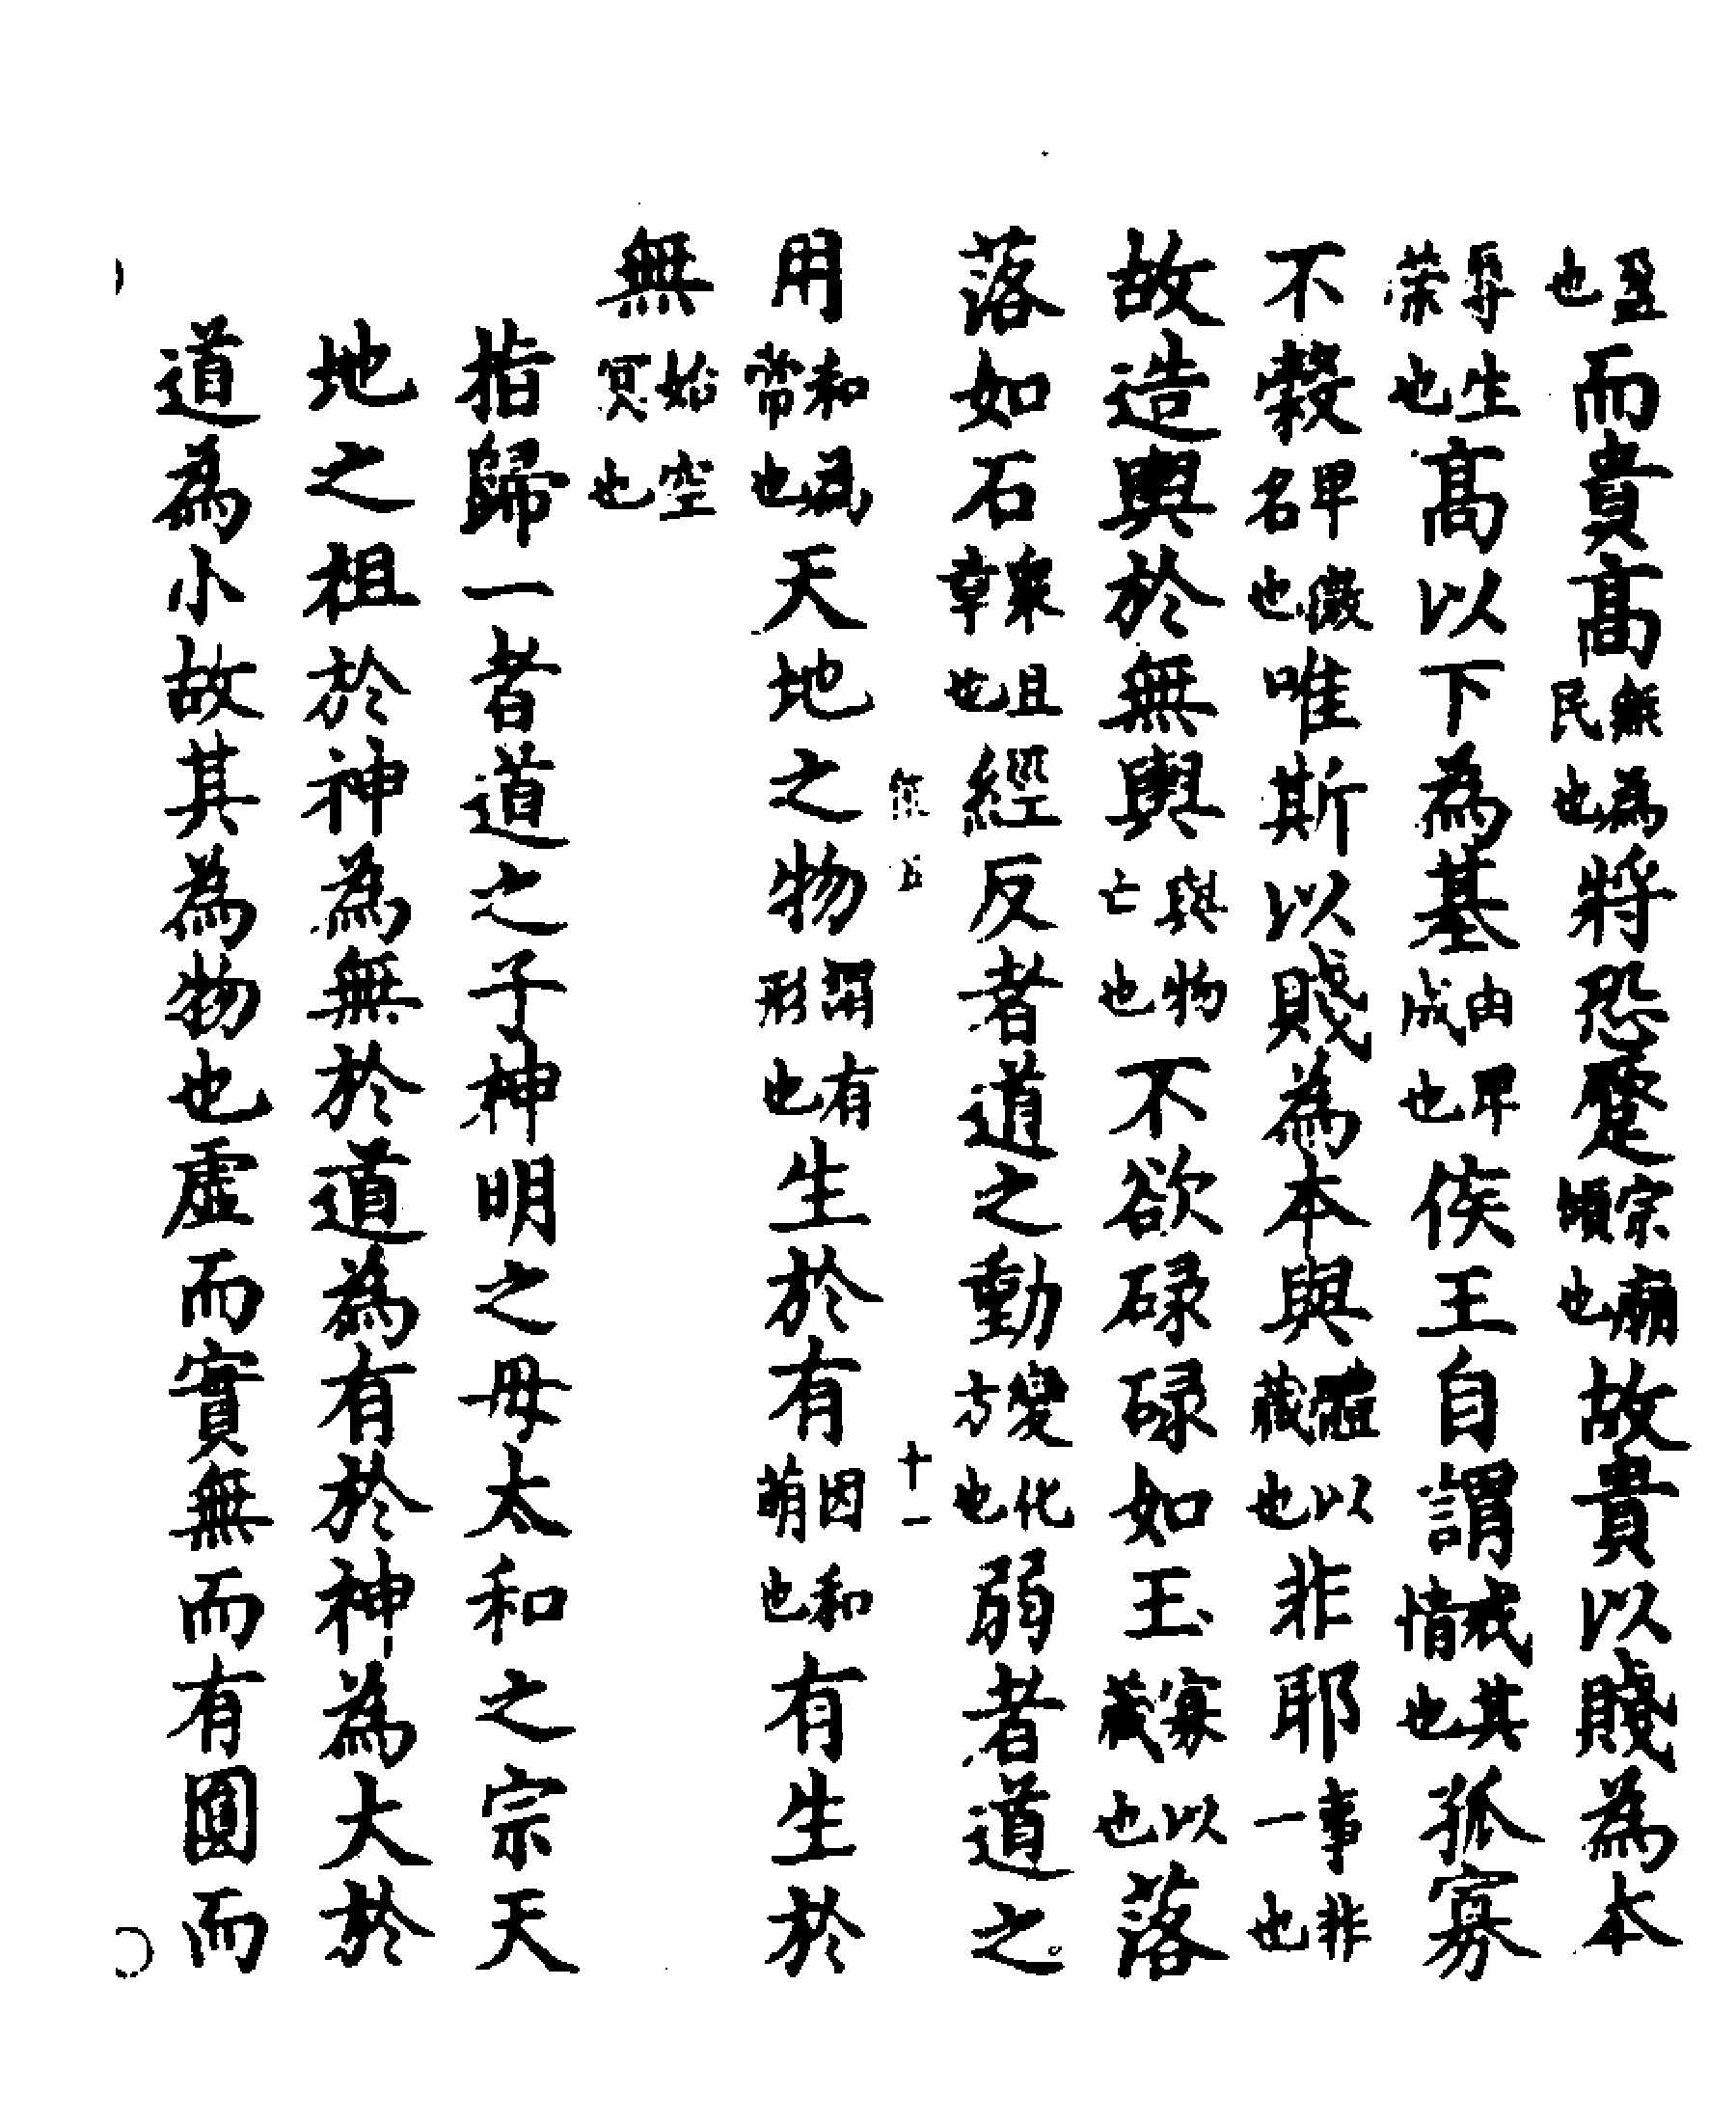 盈也而貴高無為民也將恐蹷宗廟傾也故貴以賤為本
辱生榮也高以下為基由卑成也侯王自謂戒其情也孤寡
不穀卑微名也唯斯以賤為本與體以藏也非耶事非一也
故造輿於無輿與物亡也不欲碌碌如玉寡以藏也落
落如石衆且章也經反者道之動變化方也弱者道之
五 十一
用和為常也天地之物謂有形也生於有因和萌也有生於
無始空冥也
指歸一者道之子神明之母太和之宗天
地之祖於神為無於道為有於神為大於
道為小故其為物也虛而實無而有圓而